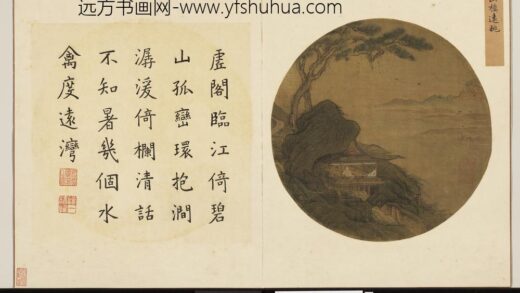 远方书画网-www.yfshuhua.com
虛閣臨江倚碧
山孤巒環抱澗
潺湲倚欄清話
不知暑幾個水
禽度遠灣